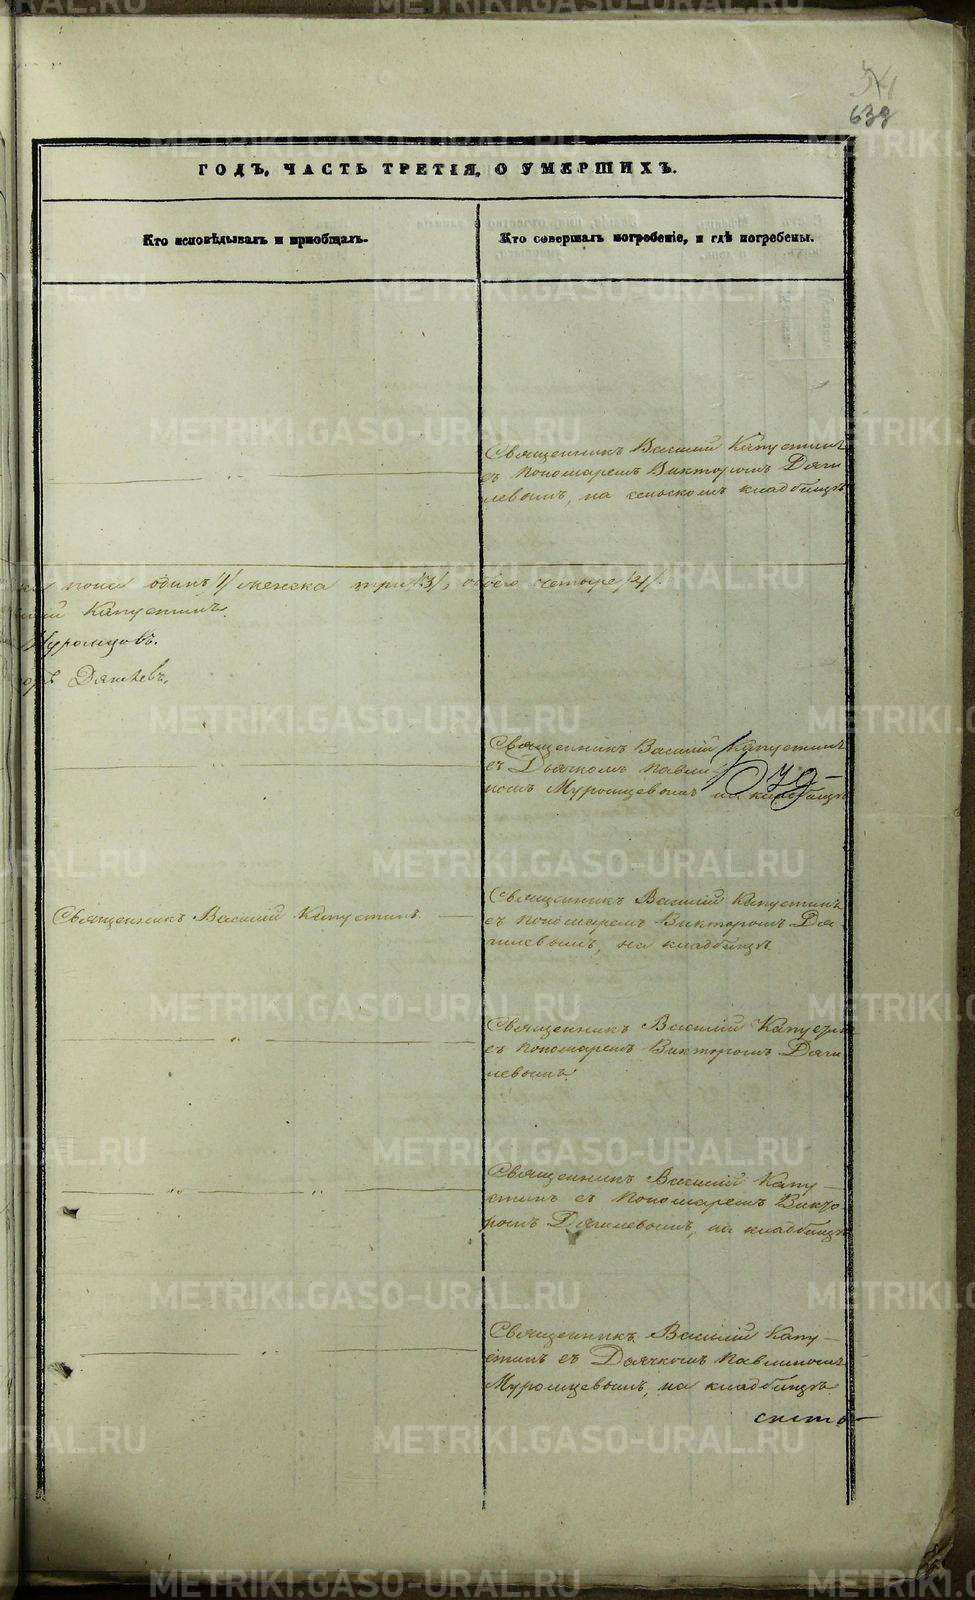 638
ГОДЪ, ЧАСТЬ ТРЕТІЯ, О УМЕРШИХЪ.
Кто исповѣдывалъ и приобщалъ.
Кто совершалъ погребеніе, и гдѣ погребены.
Священникъ Василій Капустинъ
съ Пономаремъ Викторомъ Дяги
левымъ, на сельскомъ кладбищѣ
пола одинъ /1/ женска три /3/, обоего четыре /4/.
Капустинъ.
Муромцовъ.
Дягилевъ.
Священникъ Василій Капустинъ
съ Дьячкомъ Павли
номъ Муромцевымъ на кладбищѣ
Священникъ Василій Капустинъ.
Священникъ Василій Капустинъ
съ Пономаремъ Викторомъ Дя-
гилевымъ, на кладбищѣ
Священникъ Василій Капустин
съ Пономаремъ Викторомъ Дяги
левымъ.
Священникъ Василій Капу-
стинъ съ Пономаремъ Викто-
ромъ Дягилевымъ, на кладбищѣ
Священникъ Василій Капу-
стинъ съ Дьячкомъ Павлиномъ
Муромцевымъ, на кладбищѣ.
METRIKI.GASO-URAL.RU